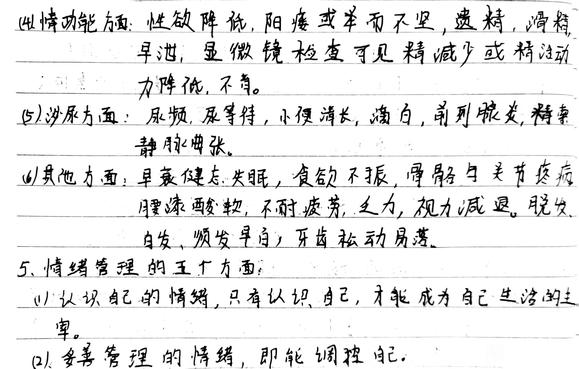 (4)性功能方面：性欲降低，阳痿或举而不坚，遗精，滑精，
早泄，显微镜检查可见精减少或精活动
力降低，不育。
(5)泌尿方面：尿频，尿等待，小便清长，滴白，前列腺炎，精索
静脉曲张。
(6)其他方面：早衰健忘，失眠，食欲不振，骨骼与关节疼痛
腰漆酸软，不耐疲劳，乏力，视力减退。脱发，
白发、须发早白，牙齿松动易落。
5、情绪管理的五个方面：
(1)认识自己的情绪，只有认识自己，才能成为自己生活的主
宰。
(2)妥善管理的情绪，即能调控自己。